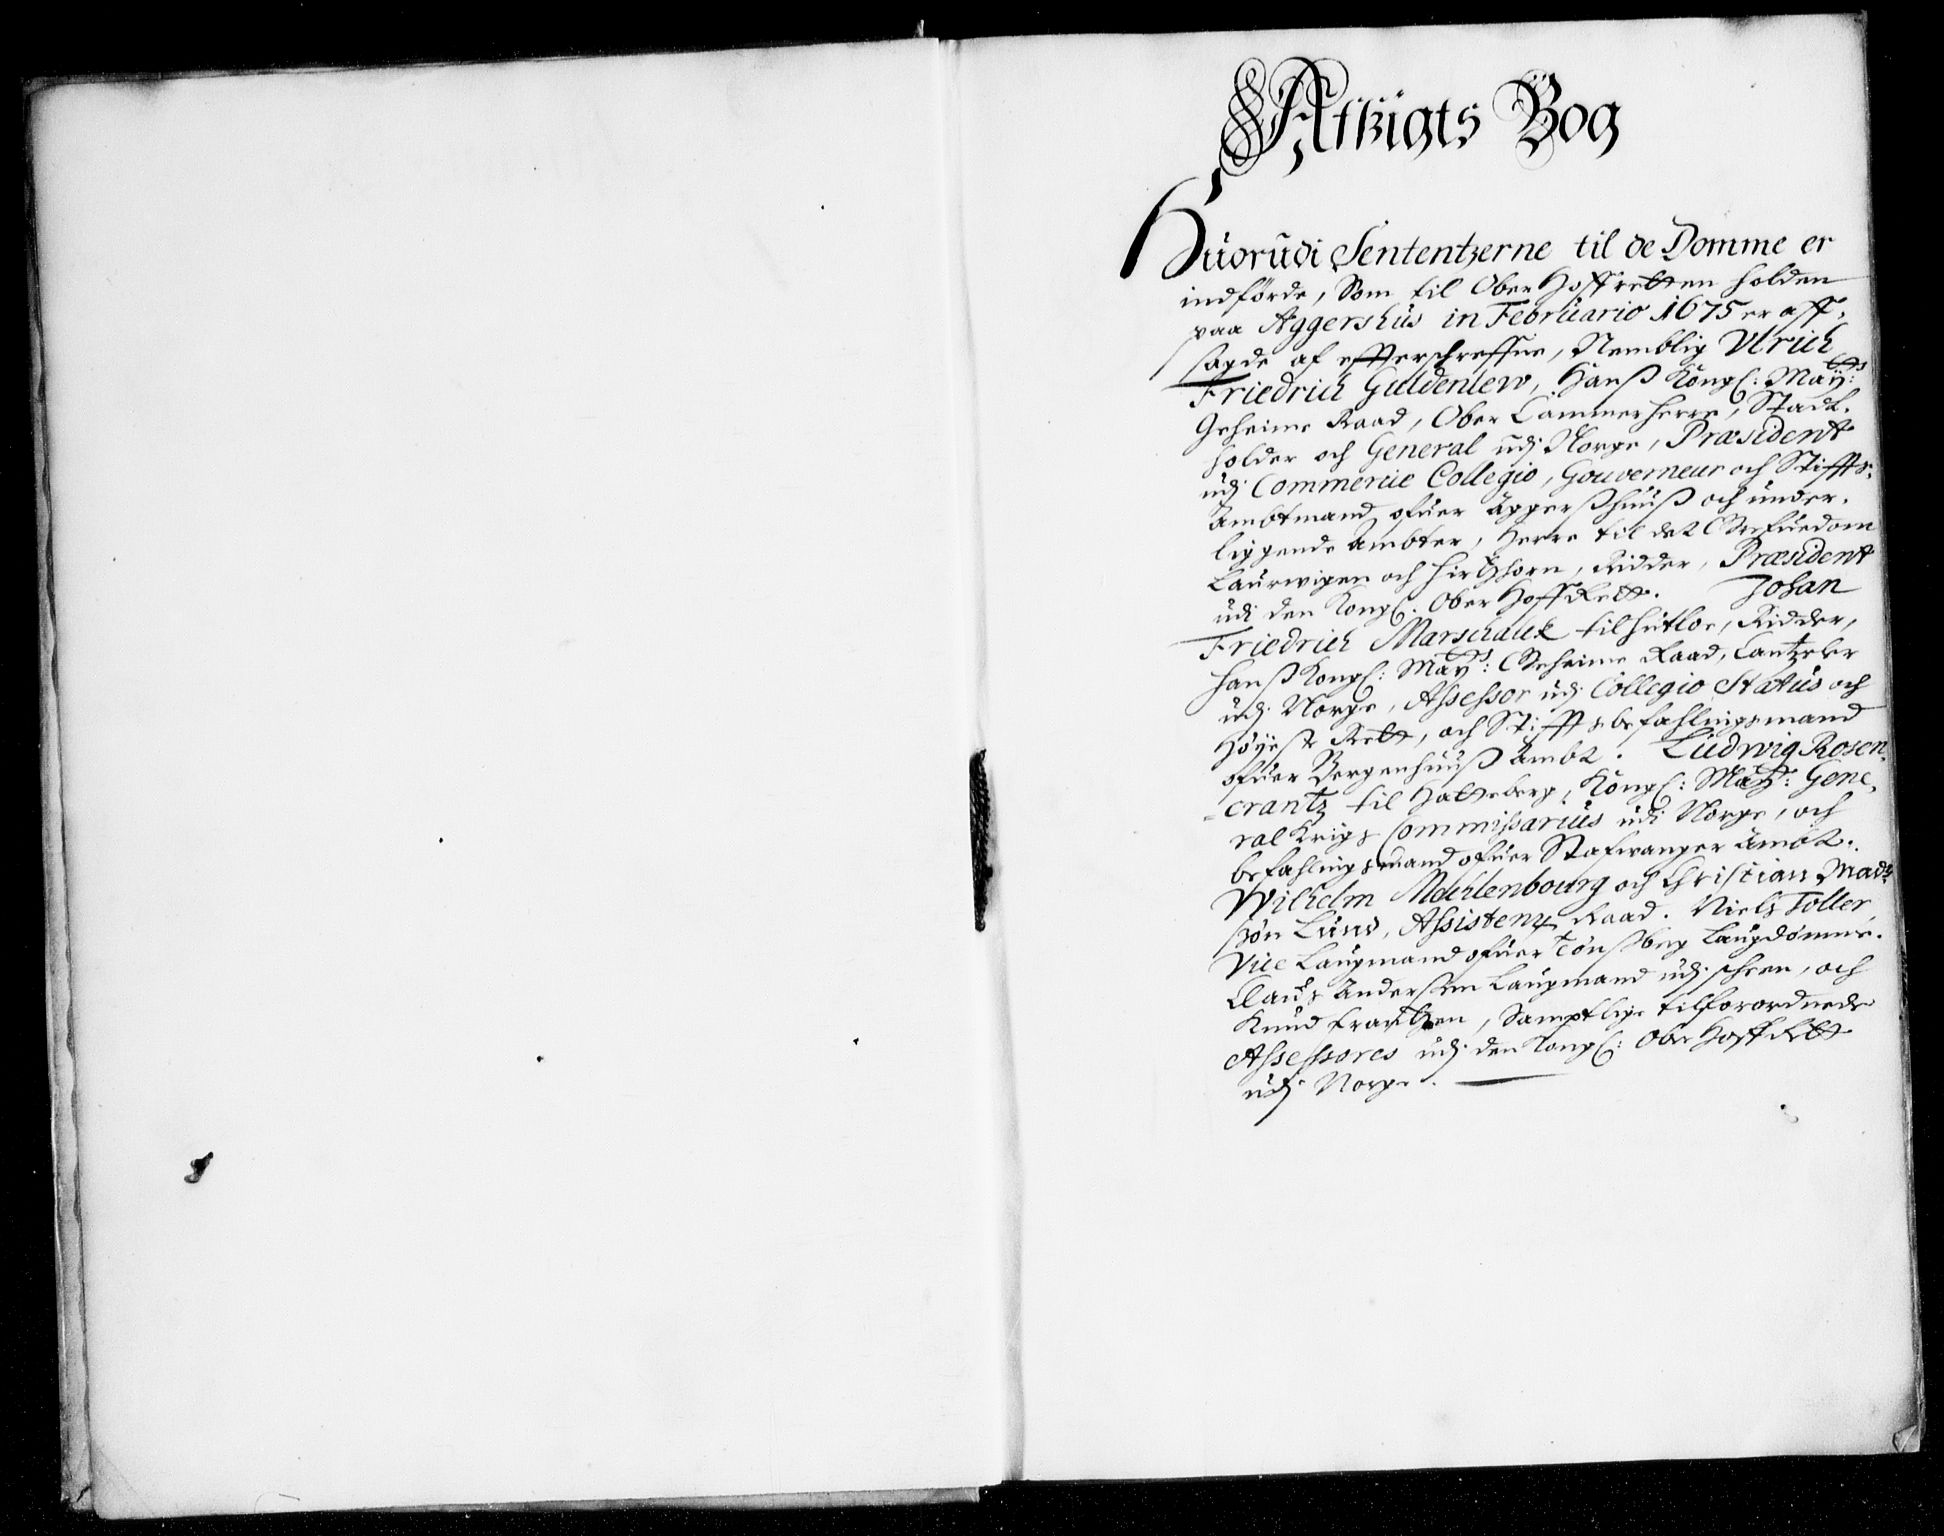 Afsigts Bog
Huorudi Sententzerne til de Domme er
indförde, Som til Ober Hoffretten holden
paa Aggershus in Februario 1675 er aff-
sagde af effterschreffne, Nemblig Vlrich
Friedrich Guldenlew, Hanß Kongl: May:tts
Geheime Raad, Ober Cammerherre, Stadt-
holder och General udj Norge, Præsident
udj Commercie Collegio, Gouverneur och Stiffts-
Ambtmand ofuer Aggerßhuuß och under-
liggende Ambter, Herre til det Grefuedom
Laurwigen och Hirtzhorn, Ridder, Præsident
udi den Kongl. Ober HoffRett. Johan
Friedrich Marschalck til Hutloe, Ridder,
Hanß Kongl: May:tts Geheime Raad, Cantzeler
udj Norge, Assessor udj Collegio Status och
Höyeste Rett, och Stifftsbefahlingsmand
ofuer Bergenhuuß Ambt. Ludwig Rosen-
crantz til Hatteberg, Kongl: May:tt Gene-
ral Krigs Commissarius udi Norge, och
befahlingsmand ofuer Stafwanger Ambt.
Wilhelm Mechlenbourg och Christian Mad-
szön Lund, Assistentz Raad. Niels Toller
Vice Laugmand ofuer Tönßberg Laugdömme.
Claus Anderßen Laugmand udj Scheen, och
Knud Frantzen, Samptlige tilforordnede
Assessores udj den Kongl: Ober HoffRett
udj Norge.